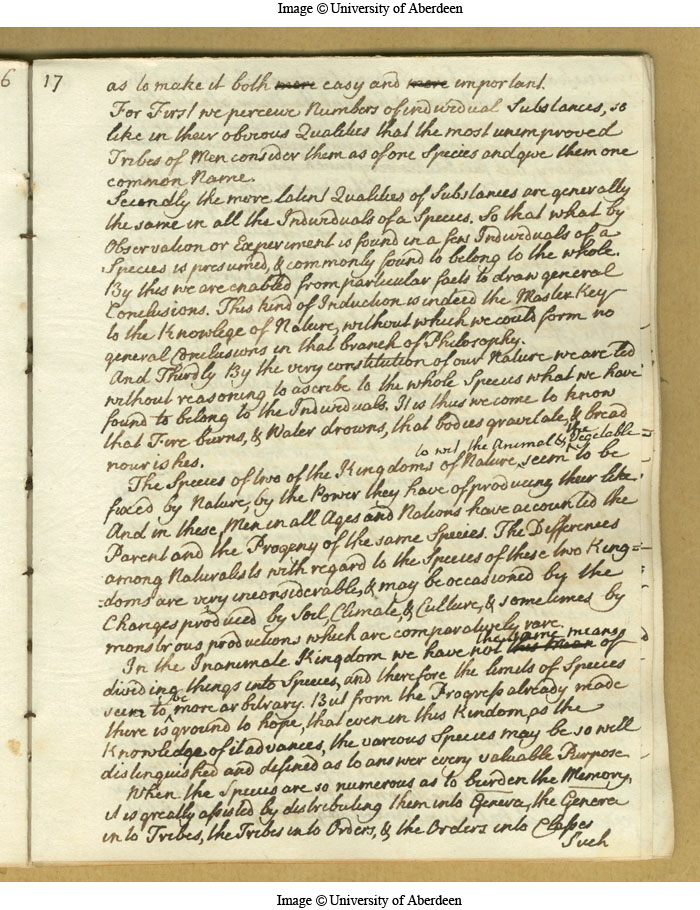 Image © University of Aberdeen
6
17
as to make it both more easy and more important.
For First we perceive Numbers of individual Substances, so
like in their obvious Qualities that the most unimproved
Tribes of Men consider them as of one Species and give them one
common Name.
Secondly the more latent Qualities of Substances are generally
the same in all the Individuals of a Species. So that what by
Observation or Experiment is found in a few Individuals of a
Species is presumed, & commonly found to belong to the whole.
By this we are enabled from particular facts to draw general
Conclusions. This kind of Induction is indeed the Master Key
to the Knowlege of Nature, without which we could form no
general Conclusions in that branch of Philosophy.
And Thirdly By the very constitution of our Nature we are led
without reasoning to ascribe to the whole Species what we have
found to belong to the Individuals. It is thus we come to know
that Fire burns, & Water drowns, that bodies gravitate, & bread
nourishes.
to wit, the Animal & the Vegetable
The Species of two of the Kingdoms of Nature, seem to be
fixed by Nature, by the Power they have of producing their like.
And in these, Men in all Ages and Nations have accounted the
Parent and the Progeny of the same Species. The Differences
among Naturalists with regard to the Species of these two King=
=doms are very inconsiderable, & may be occasioned by the
Changes produced by Soil, Climate, & Culture, & sometimes by
monstrous productions which are comparatively rare.
In the Inanimate Kingdom we have not this mean the same means of
dividing things into Species, and therefore the limits of Species
seem to be more arbitrary. But from the Progress already made
there is ground to hope, that even in this Kindom, as the
Knowledge of it advances, the various Species may be so well
distinguished and defined as to answer every valuable Purpose
When the Species are so numerous as to burden the Memory,
it is greatly assisted by distributing them into Genera, the Genera
into Tribes, the Tribes into Orders, & the Orders into Classes
Such
Image © University of Aberdeen